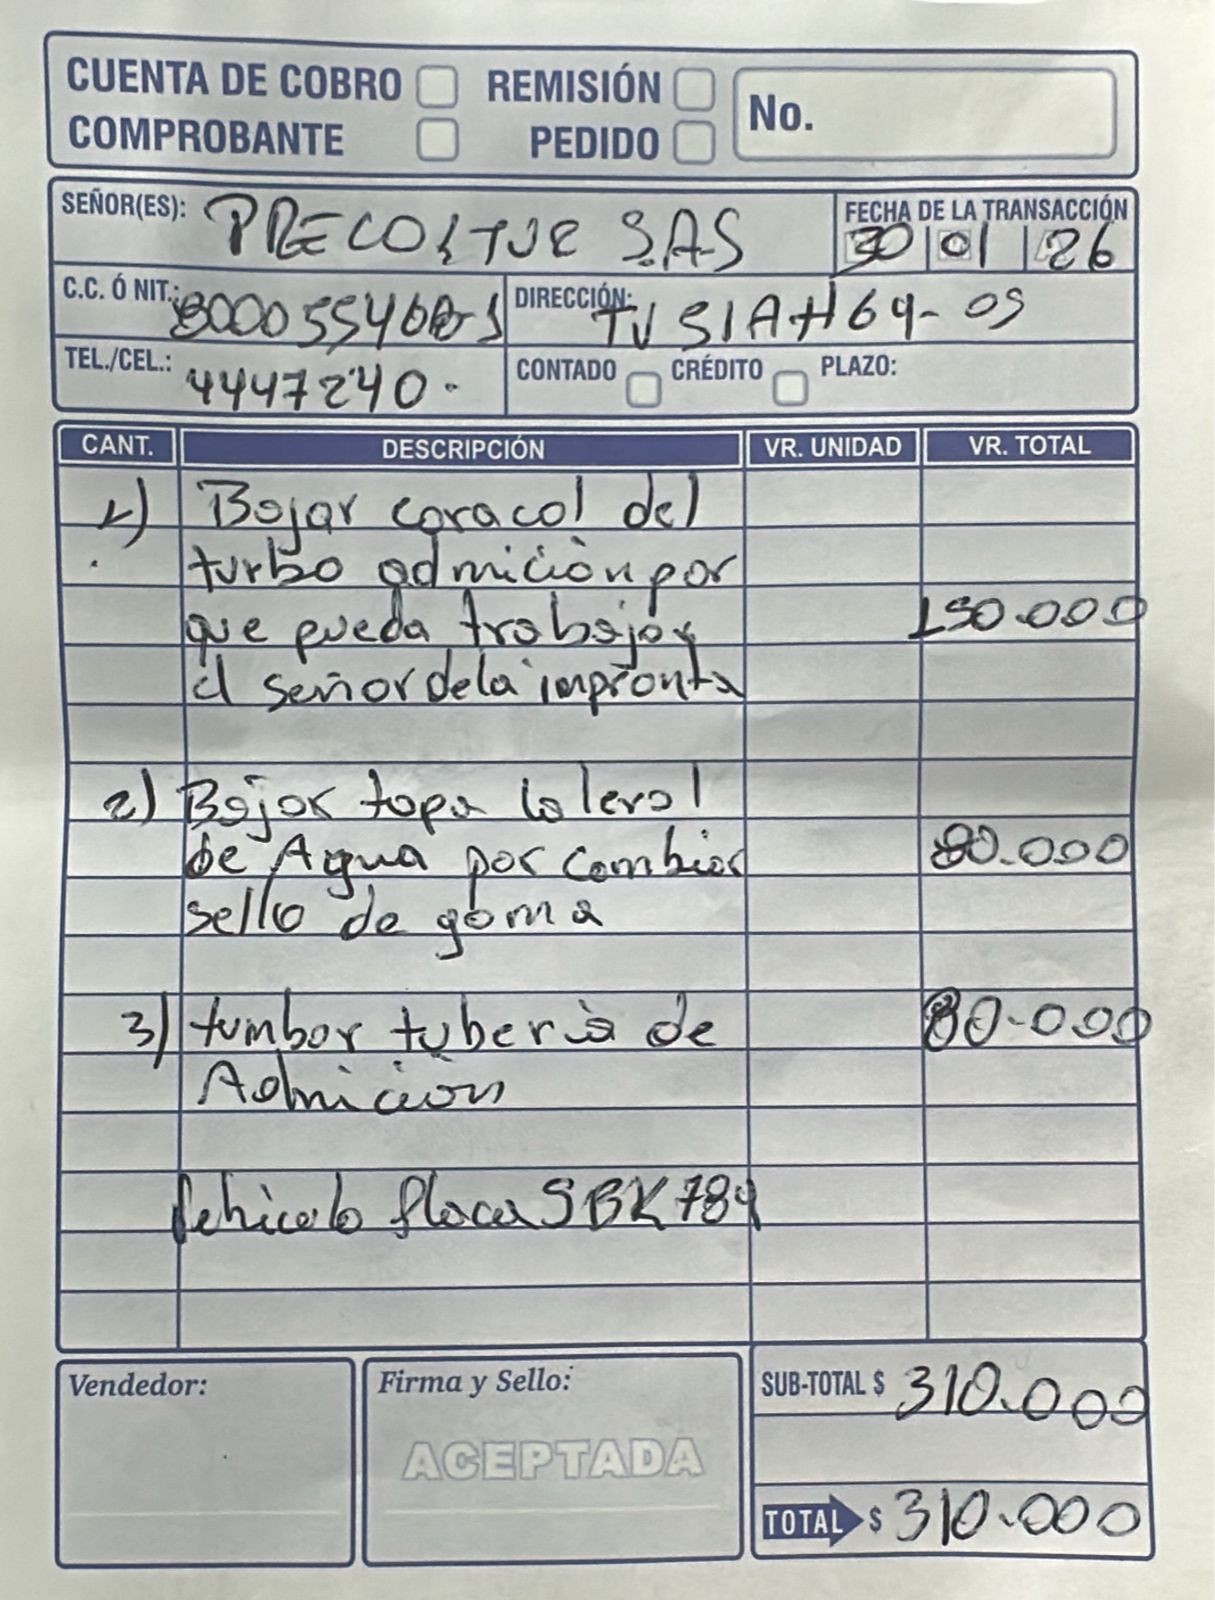 CUENTA DE COBRO REMISIÓN No.
COMPROBANTE PEDIDO
SEÑOR(ES): PRECOLTUR S.A.S FECHA DE LA TRANSACCIÓN
30 01 26
C.C. Ó NIT.: DIRECCIÓN: TV 51A #64-05
TEL./CEL.: 4447240. CONTADO CRÉDITO PLAZO:
CANT. DESCRIPCIÓN VR. UNIDAD VR. TOTAL
1) Bajar caracol del
turbo admición por
que pueda trabajar 150.000
el señor de la impronta
2) Bajar tapa lateral
de Agua por cambiar 80.000
sello de goma
3) tumbar tuberia de 80.000
Admición
Vehiculo placa SBK 784
Vendedor: Firma y Sello: SUB-TOTAL $ 310.000
ACEPTADA
TOTAL $ 310.000